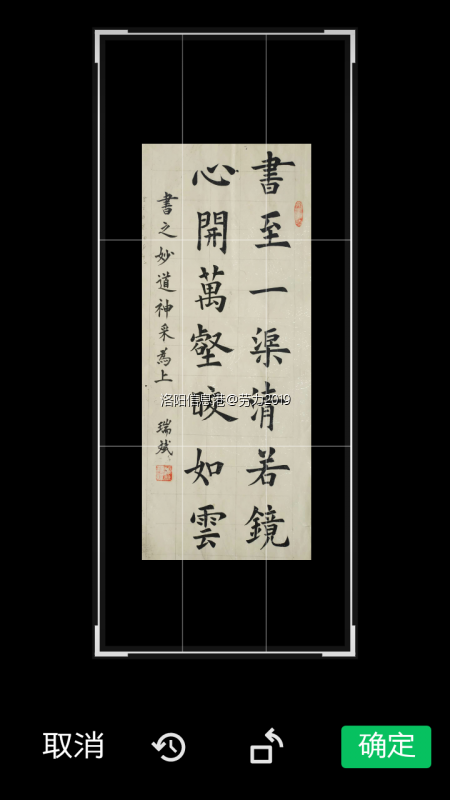 書至一渠清若鏡
心開萬壑皎如雲
書之妙道神采為上
瑞斌
洛阳信息港@劳力2019
取消
确定